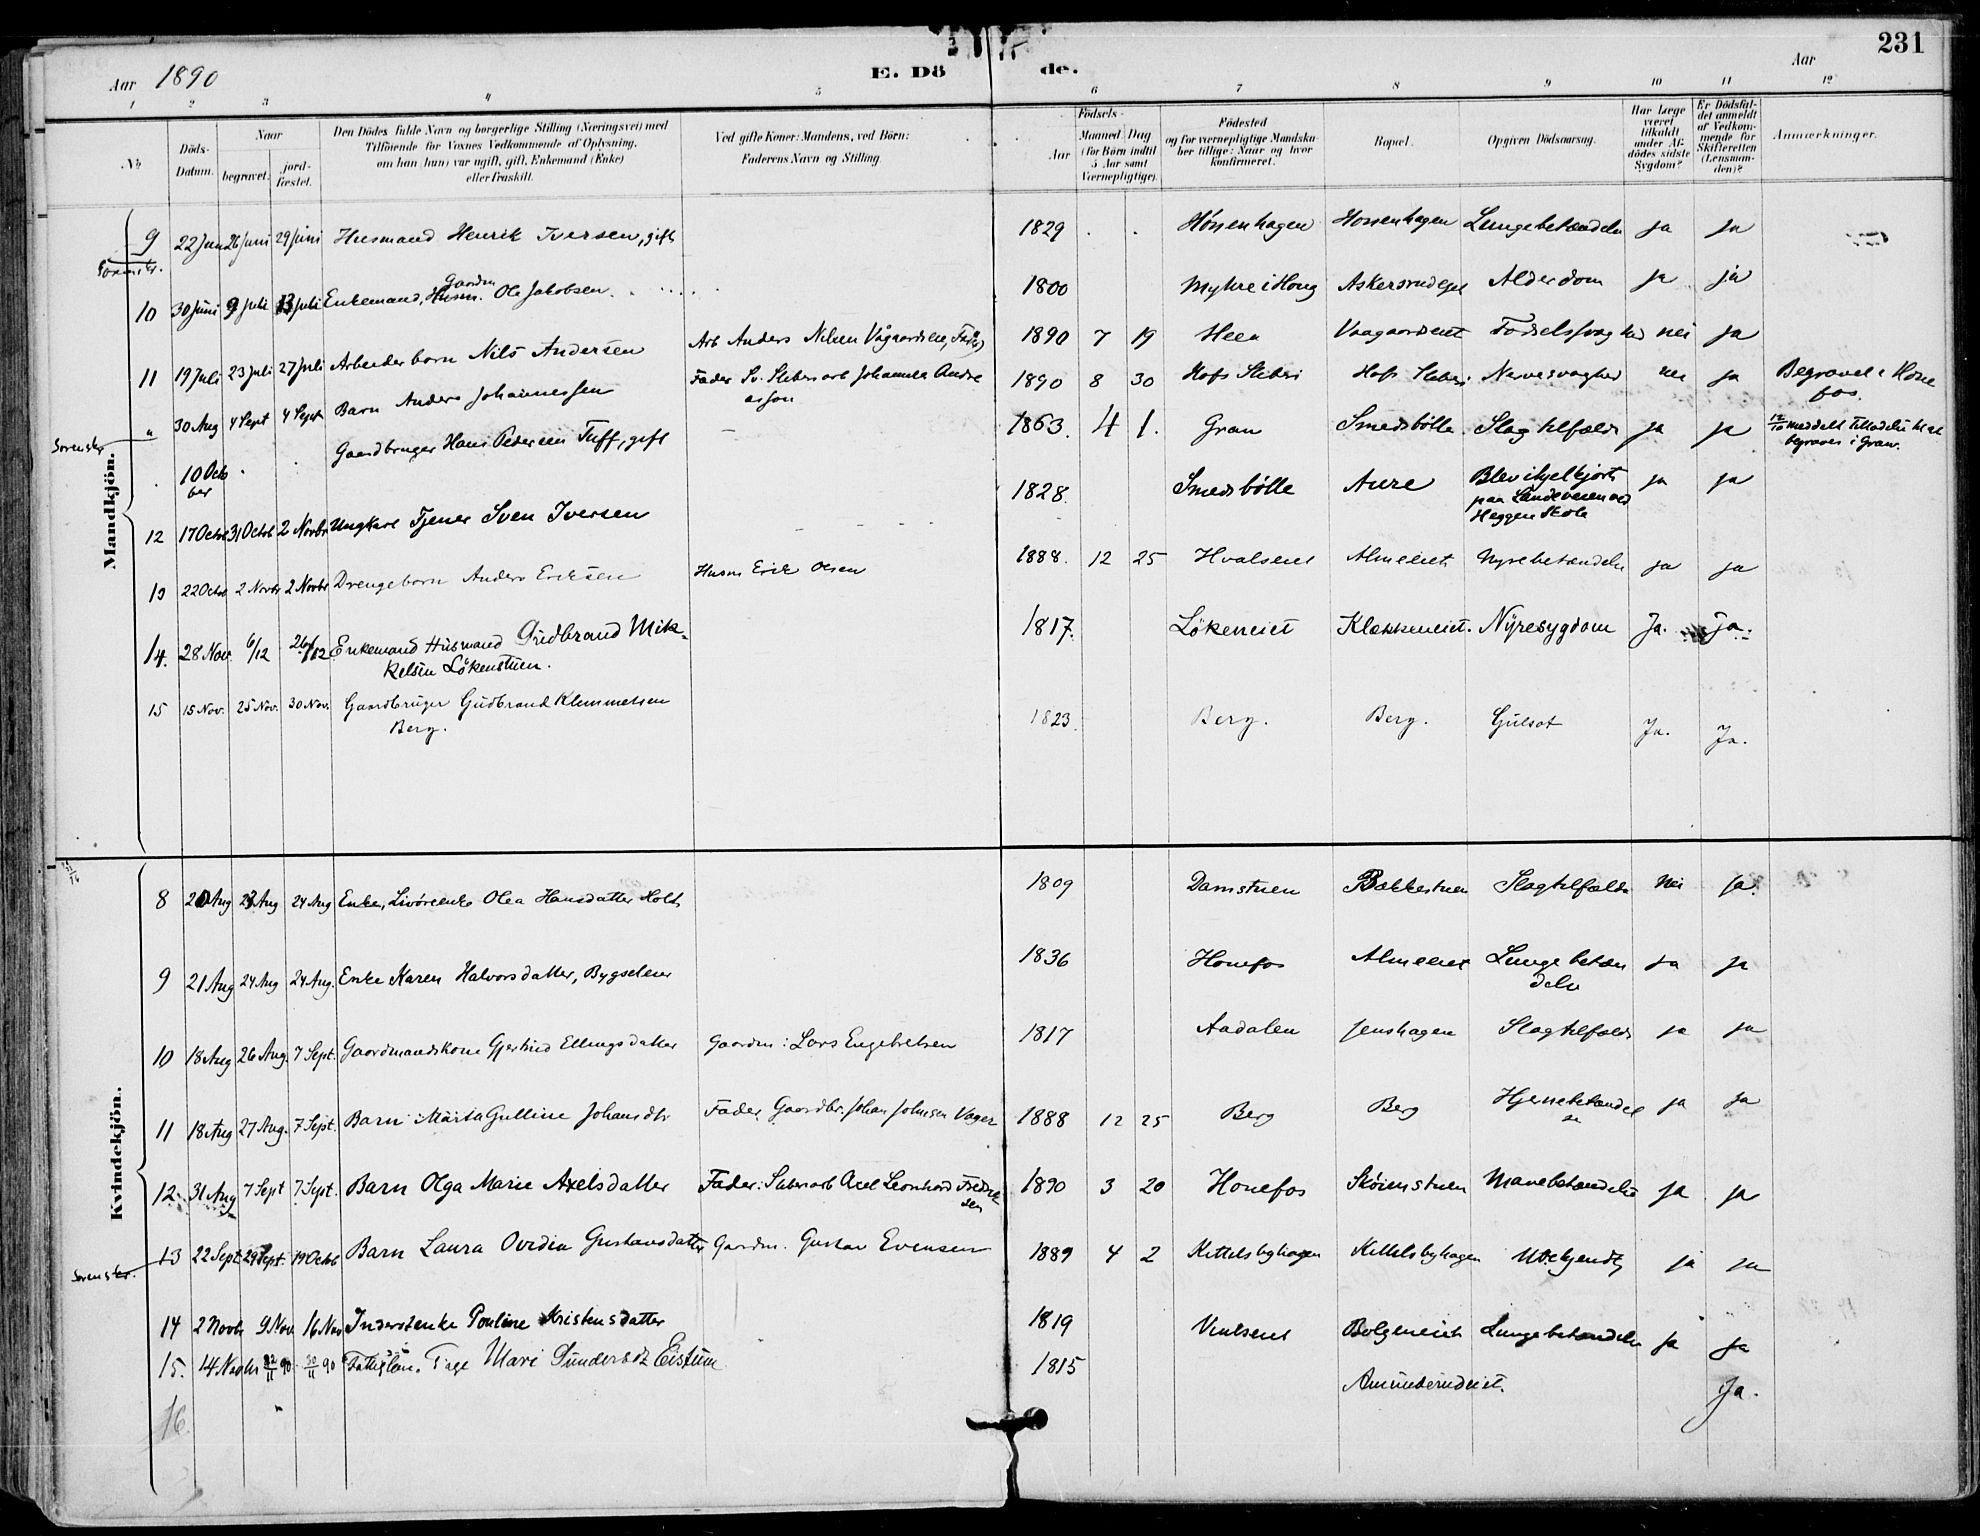 231
Aar 1890
E. Dö de.
Aar
1 2 3 4 5 6 7 8 9 10 11 12
No
Döds-Datum.
Naar begravet. jordfæstet.
Den Dödes fulde Navn og borgerlige Stilling (Næringsvei) med Tilföiende for Voxnes Vedkommende af Oplysning, om han (hun) var ugift, gift, Enkemand (Enke) eller fraskilt.
Ved gifte Koner: Mandens, ved Börn: Faderens Navn og Stilling.
Födsels-
Aar Maaned Dag (for Börn indtil 5 Aar samt Værnepligtige).
Födested og for værnepligtige Mandskaber tillige: Naar og hvor konfirmeret.
Bopæl.
Opgiven Dödsaarsag.
Har Læge været tilkaldt under Afdödes sidste Sygdom?
Er Dödsfaldet anmeldt af Vedkommende for Skifteretten (Lensmanden)?
Anmærkninger.
Mandkjön.
9 22 Juni 26 Juni 29 Juni Husmand Henrik Iversen, gift 1829 Hossenhagen Lungebetændelse ja ja
10 30 Juni 9 Juli 13 Juli Enkemand, Gaardm. Ole Jakobsen 1800 Myhre i Houg Alderdom ja ja
11 19 Juli 23 Juli 27 Juli Arbeiderbarn Nils Andersen Arb Anders Nilsen 1890 7 19 Heen nei ja
" 30 Aug 4 Sept 4 Sept Barn Anders Johannessen Fader 1890 8 30 Hofs Sliberi Hofs Sliberi Nervesvaghed nei ja Begravet i Hone fos.
10 Octo ber Gaardbruger Hans Pedersen Tuff, gift 1863. 4 1. Gran Smedsbölle Slagtilfælde ja ja 12/10 meddelt Tilladelse til at begraves i Gran.
12 17 Octob 31 Octob 2 Novbr Ungkarl Tjener Sven Iversen 1828. Smedsbölle Aure Blev ihjelkjört paa Landeveien ved Heggen Skole ja ja
13 22 Octob 2 Novbr 2 Novbr Drengebarn Anders Eriksen Husm Erik Olsen 1888. 12 25 Hvalseiet Almeeiet Nyrebetændelse ja ja
14. 28 Nov. 6/12 26/12 Enkemand Husmand Gudbrand Mik- kelsen Lökenstuen. 1817. Lökeneiet Klækkeneiet. Nyresygdom Ja. Ja.
15 15 Nov. 25 Nov. 30 Nov. Gaardbruger Gudbrand Klemmetsen Berg. 1823 Berg. Berg. Gulsot Ja. Ja.
Kvindekjön.
8 20 Aug 23 Aug 24 Aug Enke, Olea Hansdatter Holt 1809 Damstuen Bækkestuen Slagtilfælde Nei ja
9 21 Aug 24 Aug 24 Aug. Enke Karen Halvorsdatter, 1836 Honefos Almeeiet Lungebetæn delse ja ja
10 18 Aug 26 Aug. 7 Sept. Gaardmandskone Gjertrud Ellingsdatter Gaardm: Lars Engebretsen 1817 Aadalen Jenshagen Slagtilfælde ja ja
11 18 Aug 27 Aug. 7 Sept. Barn Marta Gulline Johansdtr Fader Gaardbr. Johan Johnsen 1888 12 25 Berg Berg Hjernebetændel se ja ja
12 31 Aug 7 Sept 7 Sept. Barn Olga Marie Axelsdatter Fader: Sliberiarb Axel Leonhard Fredrik sen 1890 3 20 Honefos Sköienstuen Mavebetændelse ja ja
13 22 Sept 29 Sept. 19 Octob Barn Laura Ovidia Gustavsdatter Gaardm. Gustav Evensen 1889 4 2 Kittelsbyhagen Kittelsbyhagen Ubekjendt ja ja
14 2 Novbr 9 Nov. 16 Nov Inderstenke Pouline Kristensdatter 1819 Lungebetændelse ja ja
15. 14 Novbr 22/11 90 30/11 90 Mari Gundersdt Eistuen 1815 Ja.
16